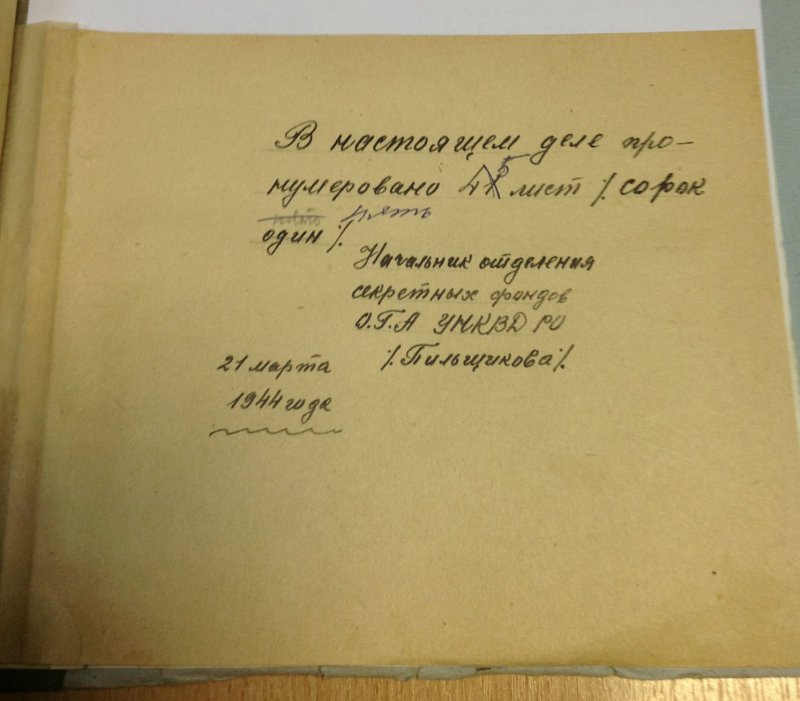 В настоящем деле про-
нумеровано 41 5 лист /. сорок
пять
один /.
Начальник отделения
секретных фондов
О.Г.А УНКВД РО
/. Пильщикова /.
21 марта
1944 года